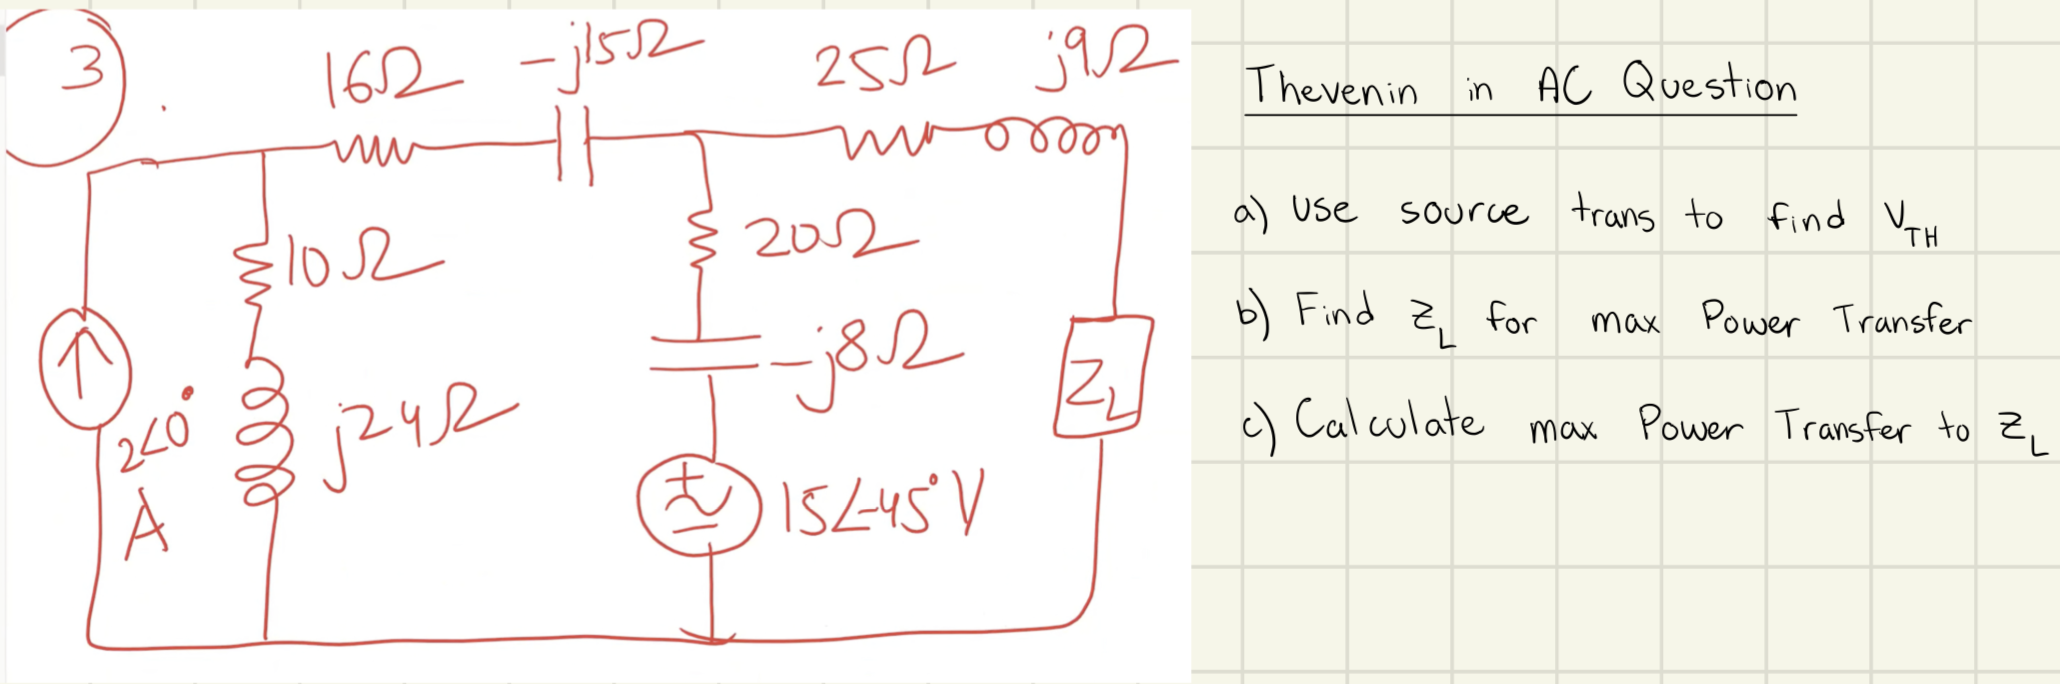 3
16Ω
-j15Ω
25Ω
j9Ω
10Ω
20Ω
-j8Ω
j24Ω
2∠0° A
15∠-45° V
Z_L
Thevenin in AC Question
a) Use source trans to find V_TH
b) Find Z_L for max Power Transfer
c) Calculate max Power Transfer to Z_L